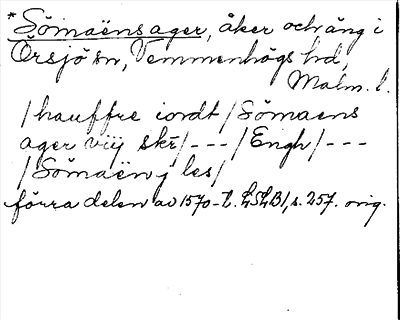 *Sömaënsager, åker och äng i
Örsjö sn, Vemmenhögs hd,
Malm. l.
/hauffre iordt/Sömaens
ager viij skr̄/---/Engh/---
/Sömaën j les/
förra delen av 1570-t. LSLB1, s. 257. orig.